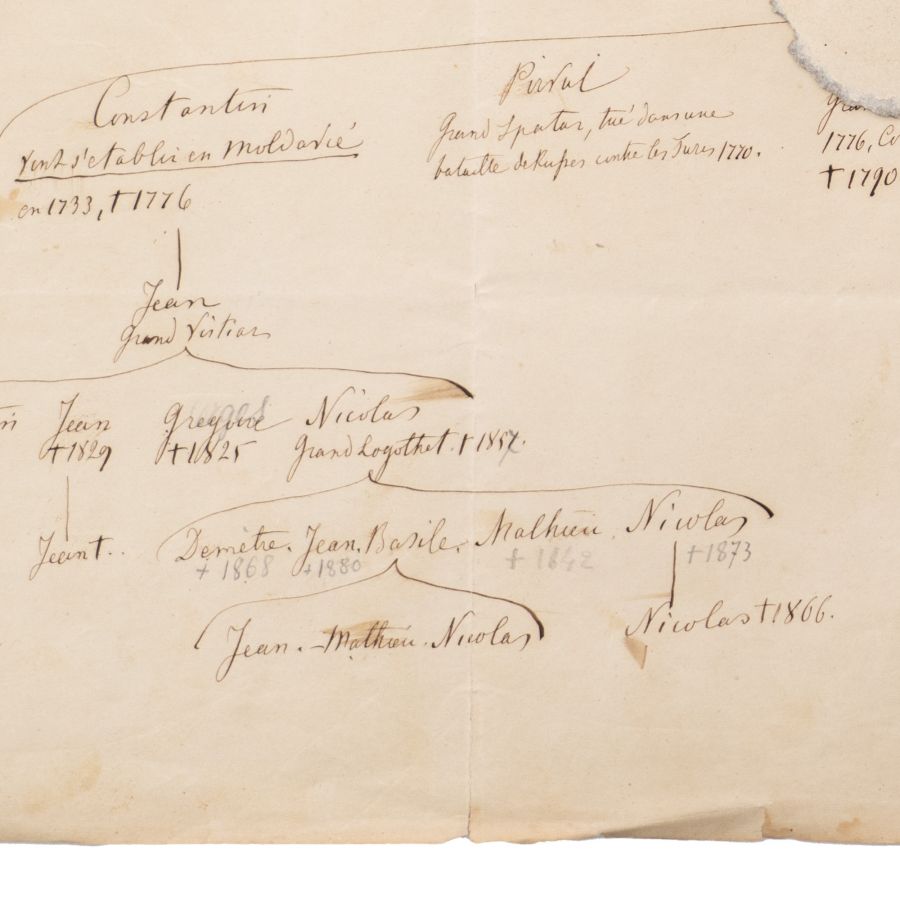 Constantin
vint s'etablir en Moldavie
en 1733, † 1776
Pirvul
Grand Spatar, tué dans une
bataille de Russes contre les Turcs 1770.
1776, Co
† 1790
Jean
Grand Vistiar
Jean
† 1829
Gregoire
† 1825
Nicolas
Grand Logothet. † 1857.
Jean †.
Demètre. Jean. Basile. Mathieu. Nicolas
+ 1868 + 1880 + 1842 + 1873
Jean. - Mathieu. Nicolas
Nicolas † 1866.